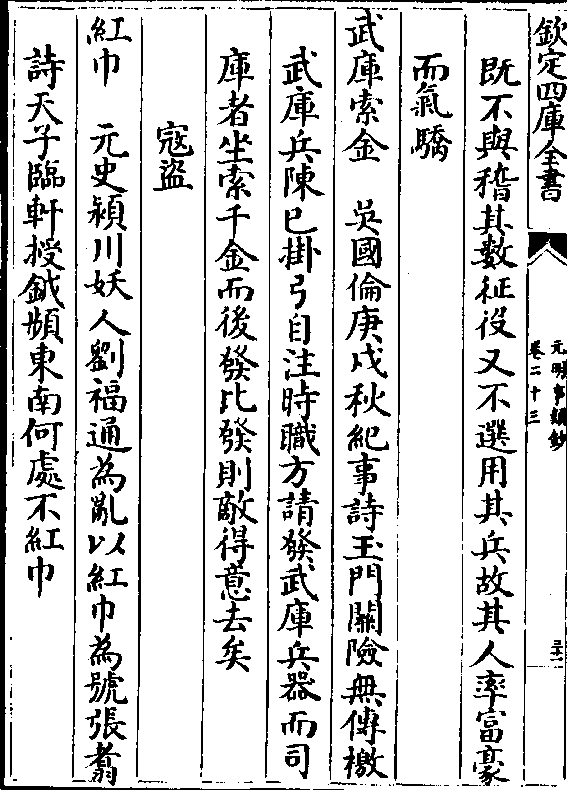 欽定四庫全書
元明事類鈔
卷二十三
三十一
既不與稽其數征役又不選用其兵故其人率富豪
而氣驕
武庫索金　吳國倫庚戌秋紀事詩玉門關險無傳檄
武庫兵陳已掛弓自注時職方請發武庫兵器而司
庫者坐索千金而後發比發則敵得意去矣
寇盜
紅巾　元史潁川妖人劉福通為亂以紅巾為號張翥
詩天子臨軒授鉞頻東南何處不紅巾